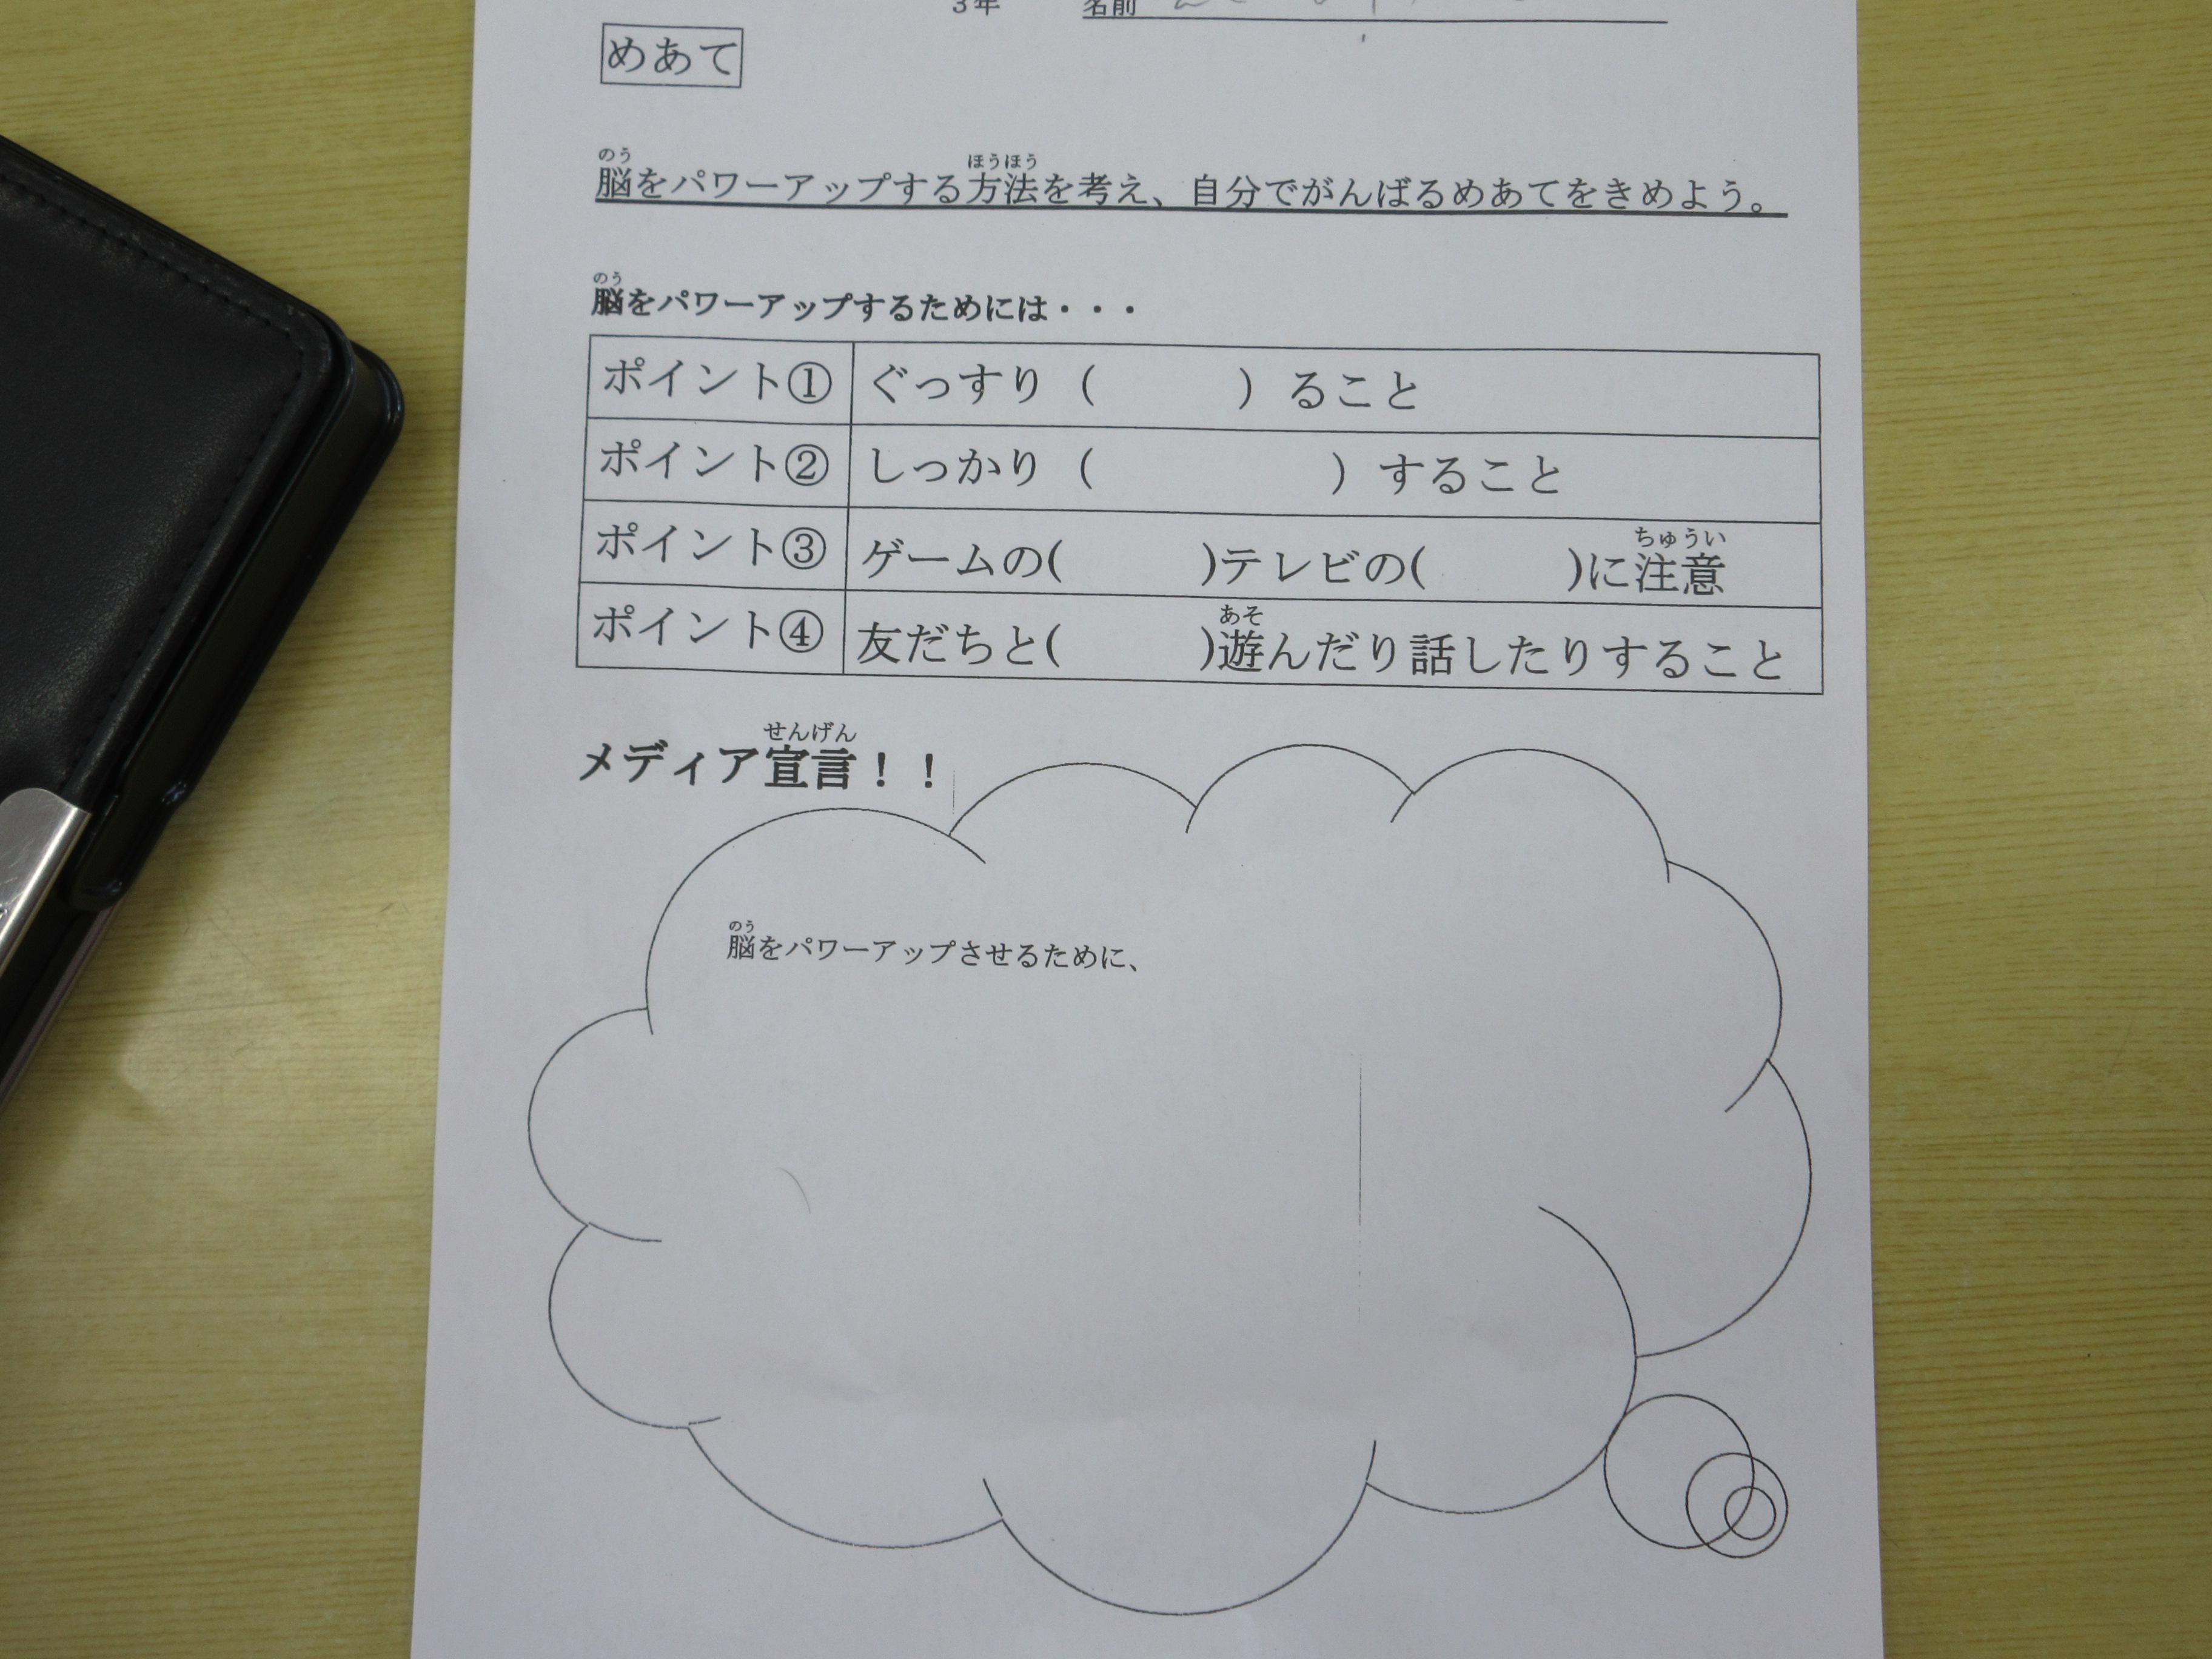 3年　名前
めあて
脳をパワーアップする方法を考え、自分でがんばるめあてをきめよう。
脳をパワーアップするためには・・・
ポイント① ぐっすり（　　　）ること
ポイント② しっかり（　　　　　）すること
ポイント③ ゲームの(　　　)テレビの(　　　)に注意
ポイント④ 友だちと(　　　)遊んだり話したりすること
メディア宣言！！
脳をパワーアップさせるために、